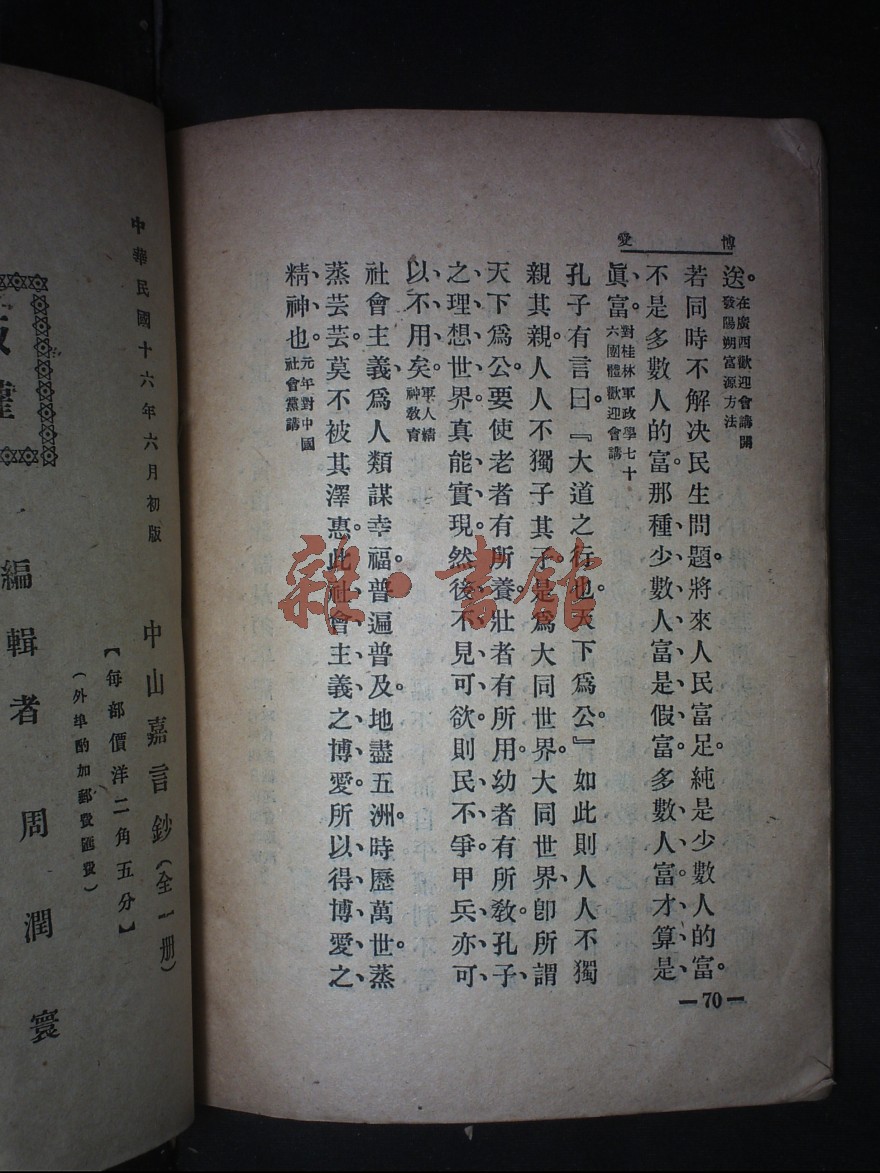 博愛
送。在廣西歡迎會講開發陽朔富源方法
若同時不解決民生問題將來人民富足。純是少數人的富。
不是多數人的富。那種少數人富是假富多數人富才算是、
眞富。對桂林軍政學七十六團體歡迎會講
孔子有言曰。『大道之行也。天下爲公。』如此則人人不獨
親其親、人人不獨子其子、是爲大同世界。大同世界、卽所謂
天下爲公。要使老者有所養。壯者有所用。幼者有所敎。孔子、
之理想世界、真能實現、然後不見可欲、則民不爭、甲兵亦可、
以不用矣。軍人精神敎育
社會主義、爲人類謀幸福。普遍普及。地盡五洲。時歷萬世。蒸
蒸芸芸。莫不被其澤惠。此社會主義之博愛、所以得博愛之、
精神也。元年對中國社會黨講
—70—
中華民國十六年六月初版
中山嘉言鈔(全一册)
【每部價洋二角五分】
(外埠酌加郵費匯費)
編輯者 周潤寰
權
雜·書館